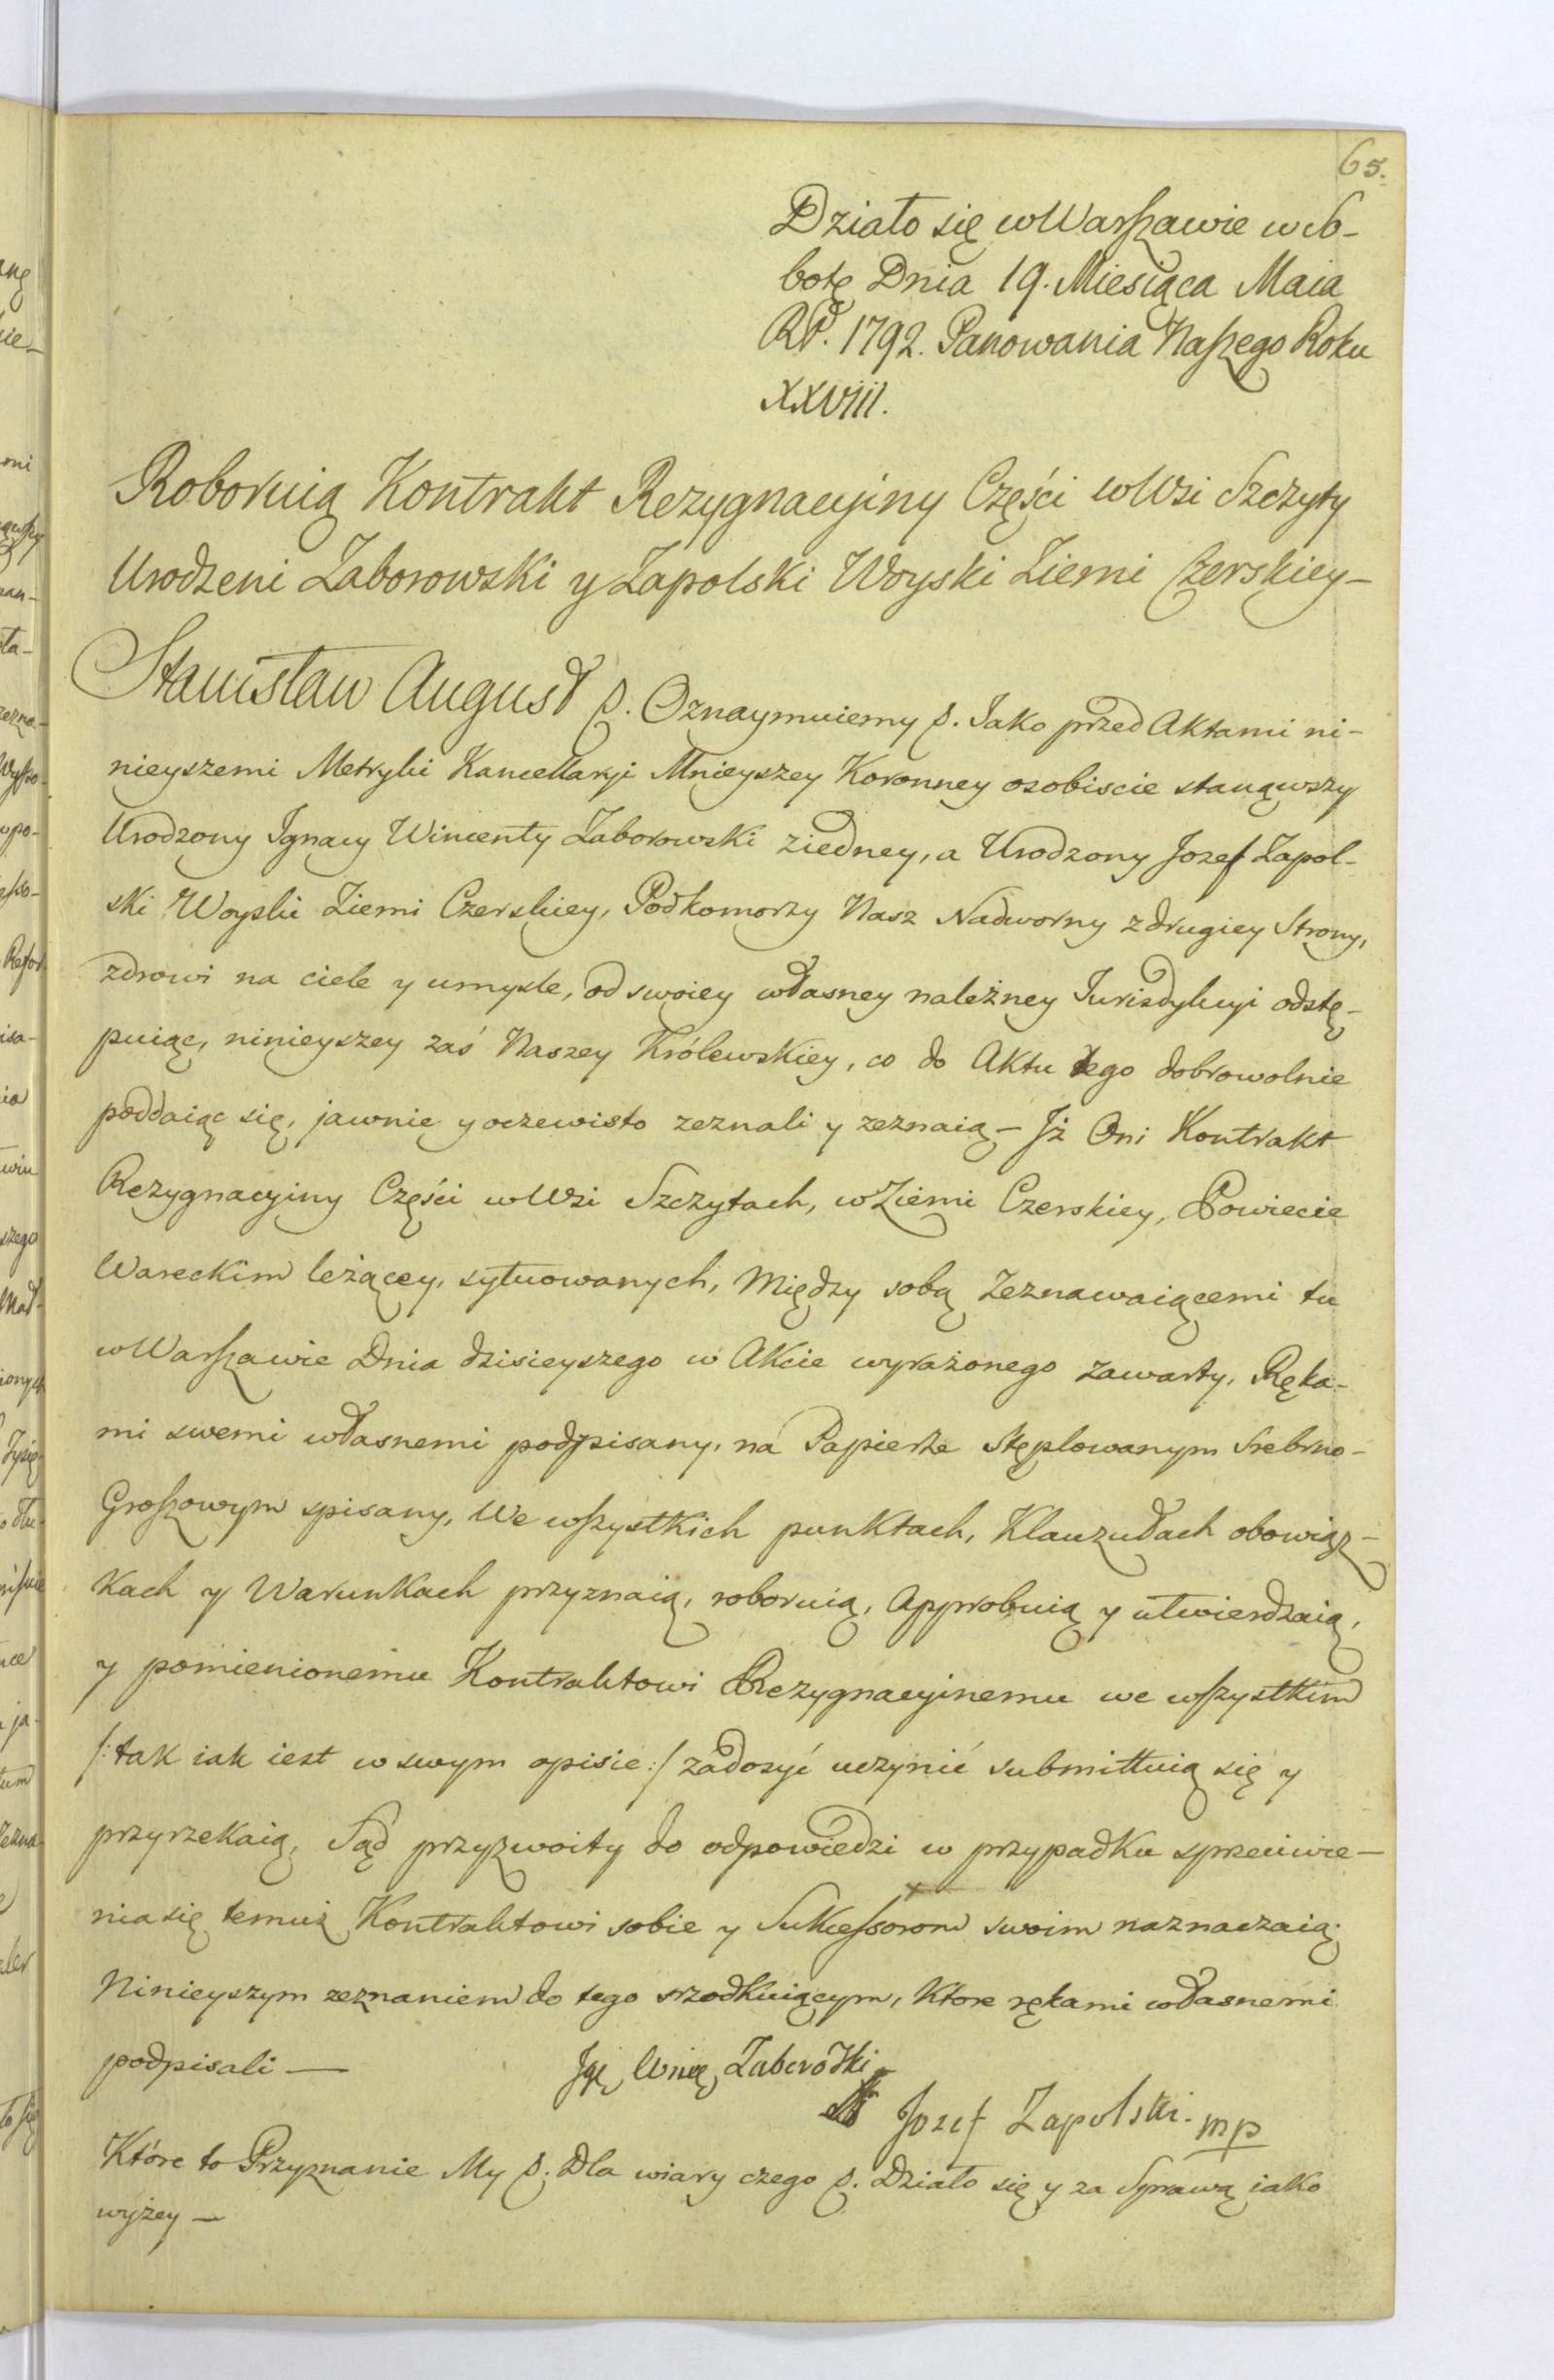 65.
Działo się w Warszawie w So-
botę Dnia 19. Miesiąca Maia
RP. 1792. Panowania Naszego Roku
XXVIII.
Roboruią Kontrakt Rezygnacyiny Części w Wsi Szczyty
Urodzeni Zaborowski y Zapolski Woyski Ziemi Czerskiey –
Stanisław August p. Oznaymuiemy p. Jako przed Aktami ni-
nieyszemi Metryki Kancellaryi Mnieyszey Koronney osobiscie stanąwszy
Urodzony Ignacy Wincenty Zaborowski z iedney, a Urodzony Jozef Zapol-
ski Woyski Ziemi Czerskiey, Podkomorzy Nasz Nadworny z drugiey Strony,
zdrowi na ciele y umysle, od swoiey własney należney Jurisdykcyi odstę-
puiąc, ninieyszey zaś Naszey Królewskiey, co do Aktu tego dobrowolnie
poddaiąc się, jawnie y oczewisto zeznali y zeznaią – Jż Oni Kontrakt
Rezygnacyiny Części w Wsi Szczytach, w Ziemi Czerskiey, Powiecie
Wareckim leżącey, sytuowanych, Między sobą Zeznawaiącemi tu
w Warszawie Dnia dzisieyszego w Akcie wyrażonego zawarty, Ręka-
mi swemi własnemi podpisany, na Papierze Stęplowanym Srebrno-
Groszowym spisany, We wszystkich punktach, Klauzułach obowiąz-
kach y Warunkach przyznaią, roboruią, Approbuią y utwierdzaią,
y pomienionemu Kontraktowi Rezygnacyinemu we wszystkim
/: tak iak iest w swym opisie :/ zadosyć uczynić submittuią się y
przyrzekaią, Sąd przyzwoity do odpowiedzi w przypadku sprzeciwie-
nia się temuż Kontraktowi sobie y Sukcessorom swoim naznaczaią.
Ninieyszym zeznaniem do tego srzodkuiącym, Ktore rękami własnemi
podpisali —
Zaborowski
Jozef Zapolski. mp
Które to Przyznanie My p. Dla wiary czego p. Działo się y za Sprawą iako
wyżey —